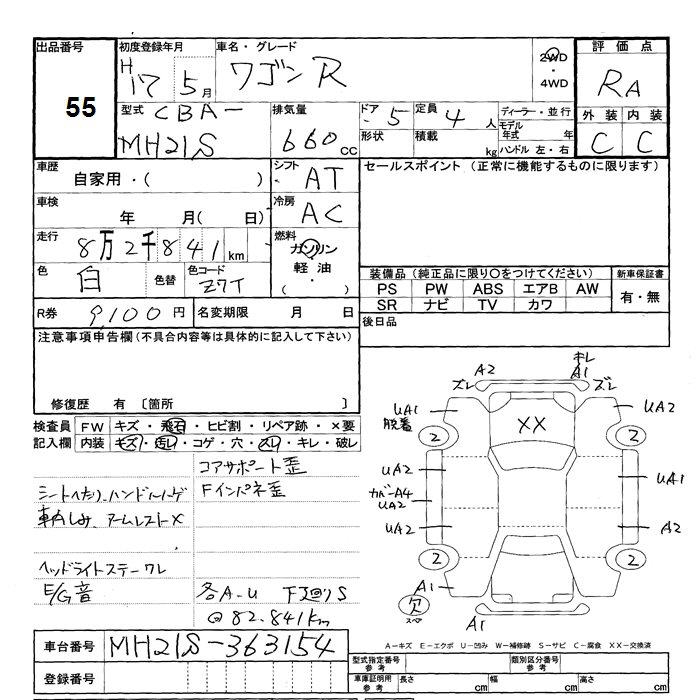 出品番号 初度登録年月 車名・グレード 評価点
55
H 17 5月 ワゴンR 2WD・4WD RA
型式 CBA- 排気量 ドア 5 定員 4人 ディーラー・並行 外装 内装
MH21S 660cc 形状 積載 kg モデル年式 年 C C
ハンドル 左・右
車歴 自家用・( ) シフト AT セールスポイント (正常に機能するものに限ります)
車検 年 月( 日) 冷房 AC
走行 8万2千841km 燃料 ガソリン
軽油
( ・ )
色 白 色替 色コード Z7T
装備品 (純正品に限り○をつけてください) 新車保証書
PS PW ABS エアB AW 有・無
SR ナビ TV カワ
R券 9,100円 名変期限 月 日 後日品
注意事項申告欄(不具合内容等は具体的に記入して下さい)
修復歴 有 〔箇所 〕
検査員 FW キズ・飛石・ヒビ割・リペア跡・×要
記入欄 内装 キズ・汚レ・コゲ・穴・スレ・キレ・破レ
コアサポート歪
シートへたり、ハンドルハゲ Fインパネ歪
アームレスト×
ヘッドライトステーワレ
E/G音 各A-U 下廻りS
@82.841km
A2 キレ
A1
ズレ ズレ
UA1 UA2
脱着 XX
2 2
UA2 UA1
カバーA4
UA2
UA2 A2
2 2
A1
欠 A1
スペ
A-キズ E-エクボ U-凹み W-補修跡 S-サビ C-腐食 XX-交換済
車台番号 MH21S-363154
登録番号
型式指定番号 参考 類別区分番号 参考
車庫証明用 参考 長さ cm 幅 cm 高さ cm